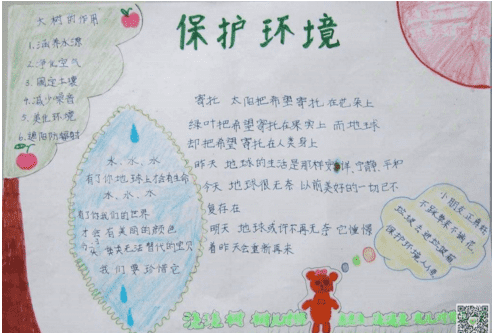 保护环境
大树的作用
1.涵养水源
2.净化空气
3.固定土壤
4.减少噪音
5.美化环境
6.遮阳防辐射
寄托 太阳把希望寄托在花朵上
绿叶把希望寄托在果实上 而地球
却把希望寄托在人类身上
昨天 地球的生活是那样 宁静、平和
今天 地球很无奈 以前美好的一切已不
复存在
明天 地球或许不再无奈 它憧憬
着昨天会重新再来
水、水、水
有了你地球上才有生命
水、水、水
有了你我们的世界
才会有美丽的颜色
类无法替代的宝贝
我们要珍惜它
小朋友正角虾
不敢攀来不摘花
垃圾
保护环境人人